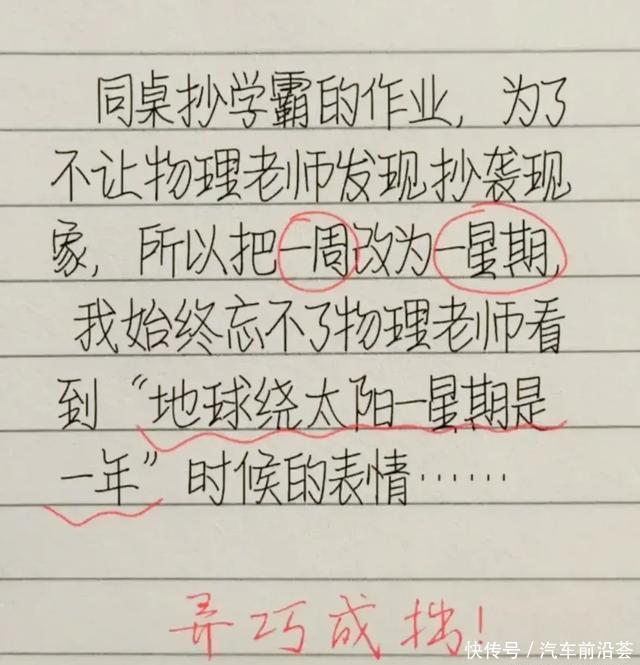 同桌抄学霸的作业，为了
不让物理老师发现抄袭现
象，所以把一周改为一星期，
我始终忘不了物理老师看
到“地球绕太阳一星期是
一年”时候的表情……
弄巧成拙！
快传号/汽车前沿荟